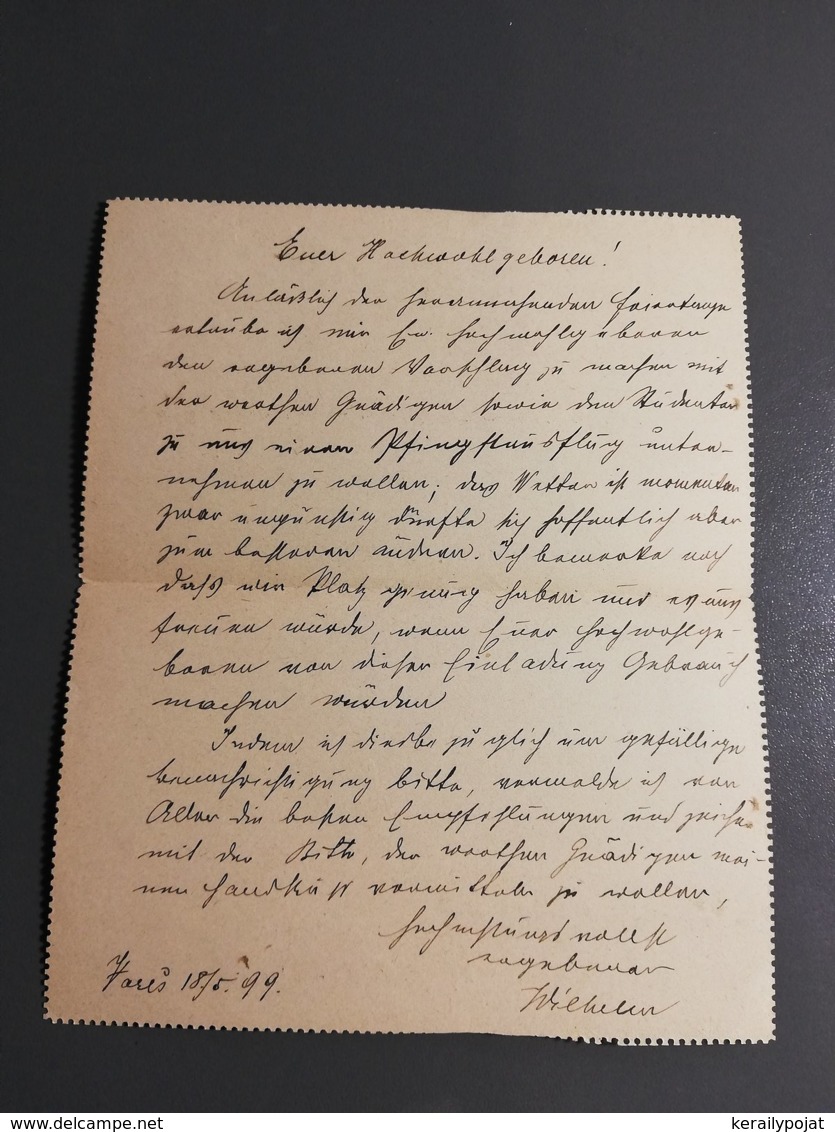 Euer Hochwohlgeboren!
Anläßlich der herannahenden Feiertage
erlaube ich mir Ew. Hochwohlgeboren
den ergebenen Vorschlag zu machen mit
der werthen Gnädigen sowie den Studenten
zu uns einen Pfingstausflug unter-
nehmen zu wollen; das Wetter ist momentan
zwar ungünstig dürfte sich hoffentlich aber
zum besseren ändern. Ich bemerke noch
daß wir Platz genug haben und es uns
freuen würde, wenn Euer Hochwohlge-
boren von dieser Einladung Gebrauch
machen würden
Indem ich diesbezüglich um gefällige
Benachrichtigung bitte, vermelde ich von
Allen die besten Empfehlungen und zeichne
mit der Bitte, der werthen Gnädigen mei-
nen Handkuß vermitteln zu wollen,
hochachtungsvollst
ergebener
Wilhelm
Vareš 18/5. 99.
www.delcampe.net
kerailypojat